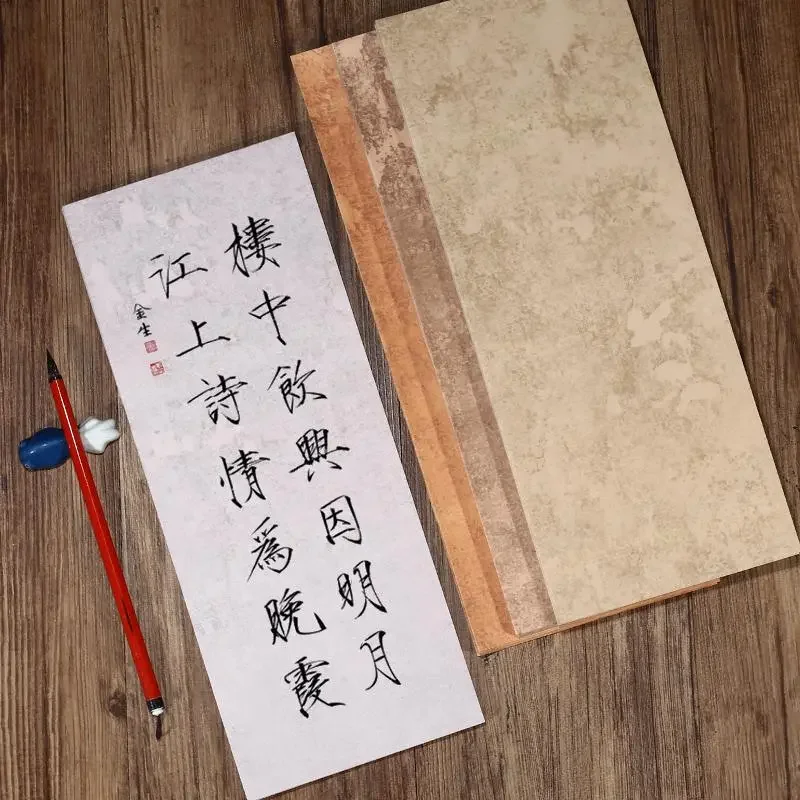 樓中飲興因明月
江上詩情為晚霞
金生